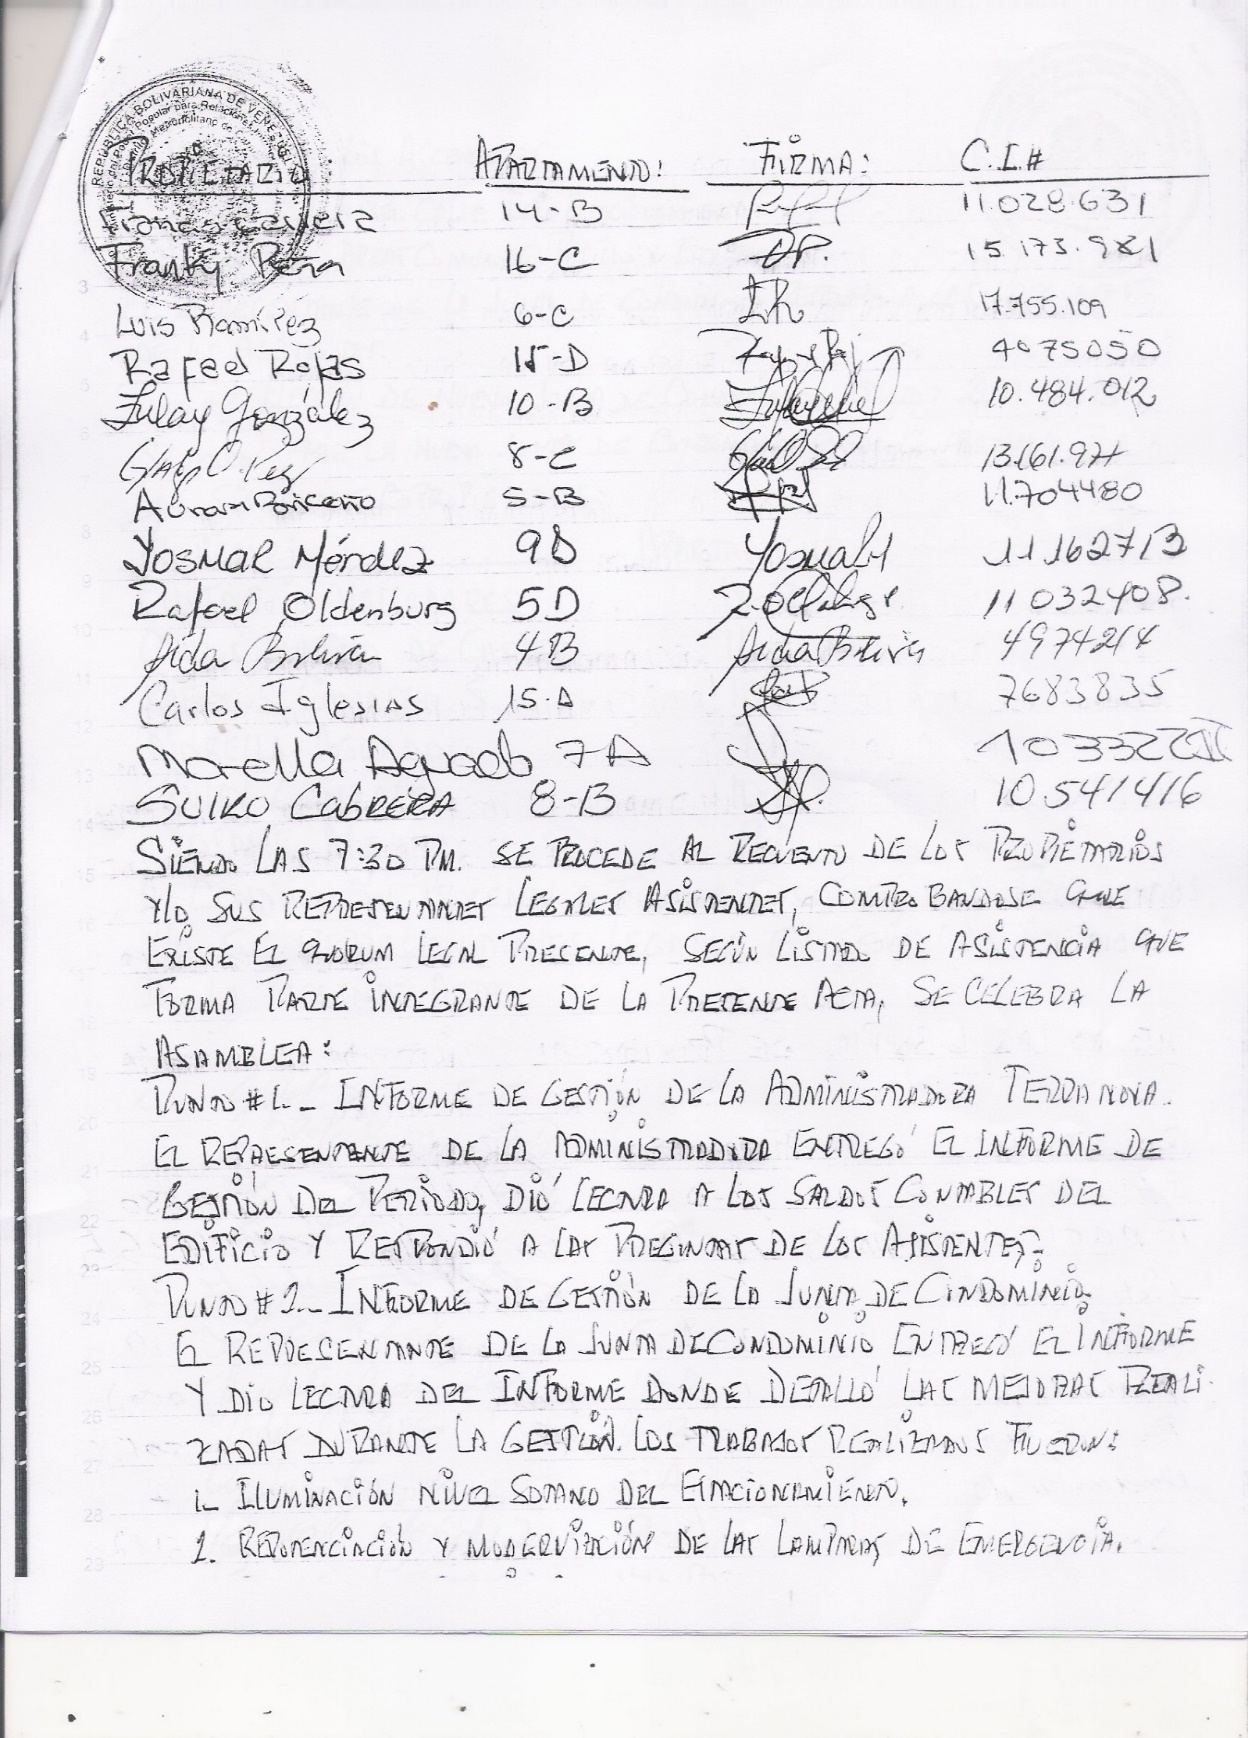 REPÚBLICA BOLIVARIANA DE VENEZUELA
Popular para Relaciones
Metropolitano de
PROPIETARIO APARTAMENTO: FIRMA: C.I.#
14-B 11.028.631
Franky Peña 16-C 15.173.981
Luis Ramírez 6-C 17.755.109
Rafael Rojas 15-D 4075050
Zulay González 10-B 10.484.012
8-C 13.161.971
Aurora Briceño 5-B 11.704480
Yosmar Méndez 9D Yosmar M 11.162713
Rafael Oldenburg 5D 11032408.
Aida Bolívar 4B Aida Bolívar 4974214
Carlos Iglesias 15-A 7683835
Morella Aguado 7A
SUIKO CABRERA 8-B 10.541416
SIENDO LAS 7:30 PM. SE PROCEDE AL RECUENTO DE LOS PROPIETARIOS
Y/O SUS REPRESENTANTES LEGALES ASISTENTES, COMPROBANDOSE QUE
EXISTE EL QUORUM LEGAL PRESENTE, SEGÚN LISTADO DE ASISTENCIA QUE
FORMA PARTE INTEGRANTE DE LA PRESENTE ACTA, SE CELEBRA LA
ASAMBLEA:
PUNTO #1._ INFORME DE GESTIÓN DE LA ADMINISTRADORA TERRANOVA.
EL REPRESENTANTE DE LA ADMINISTRADORA ENTREGÓ EL INFORME DE
GESTIÓN DEL PERÍODO, DIÓ LECTURA A LOS SALDOS CONTABLES DEL
EDIFICIO Y RESPONDIÓ A LAS PREGUNTAS DE LOS ASISTENTES.
PUNTO #2._ INFORME DE GESTIÓN DE LA JUNTA DE CONDOMINIO.
EL REPRESENTANTE DE LA JUNTA DE CONDOMINIO ENTREGÓ EL INFORME
Y DIO LECTURA DEL INFORME DONDE DETALLÓ LAS MEJORAS REALI-
ZADAS DURANTE LA GESTIÓN. LOS TRABAJOS REALIZADOS FUERON:
1._ ILUMINACIÓN NIVEL SOTANO DEL ESTACIONAMIENTO.
2. REPOTENCIACIÓN Y MODERNIZACIÓN DE LAS LAMPARAS DE EMERGENCIA.